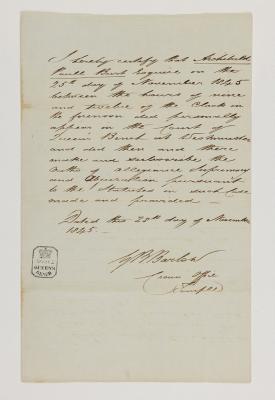 I hereby certify that Archibald
Paull Burt Esquire on the
25th day of November 1845
between the hours of nine
and twelve of the Clock in
the forenoon did personally
appear in the Court of
Queen's Bench at Westminster
and did then and there
make and subscribe the
Oaths of allegiance Supremacy
and Abjuration pursuant
to the Statutes in such Case
made and provided —
Dated this 25th day of November
1845 —
Barlow
Crown Office
Temple
QUEEN'S
BENCH